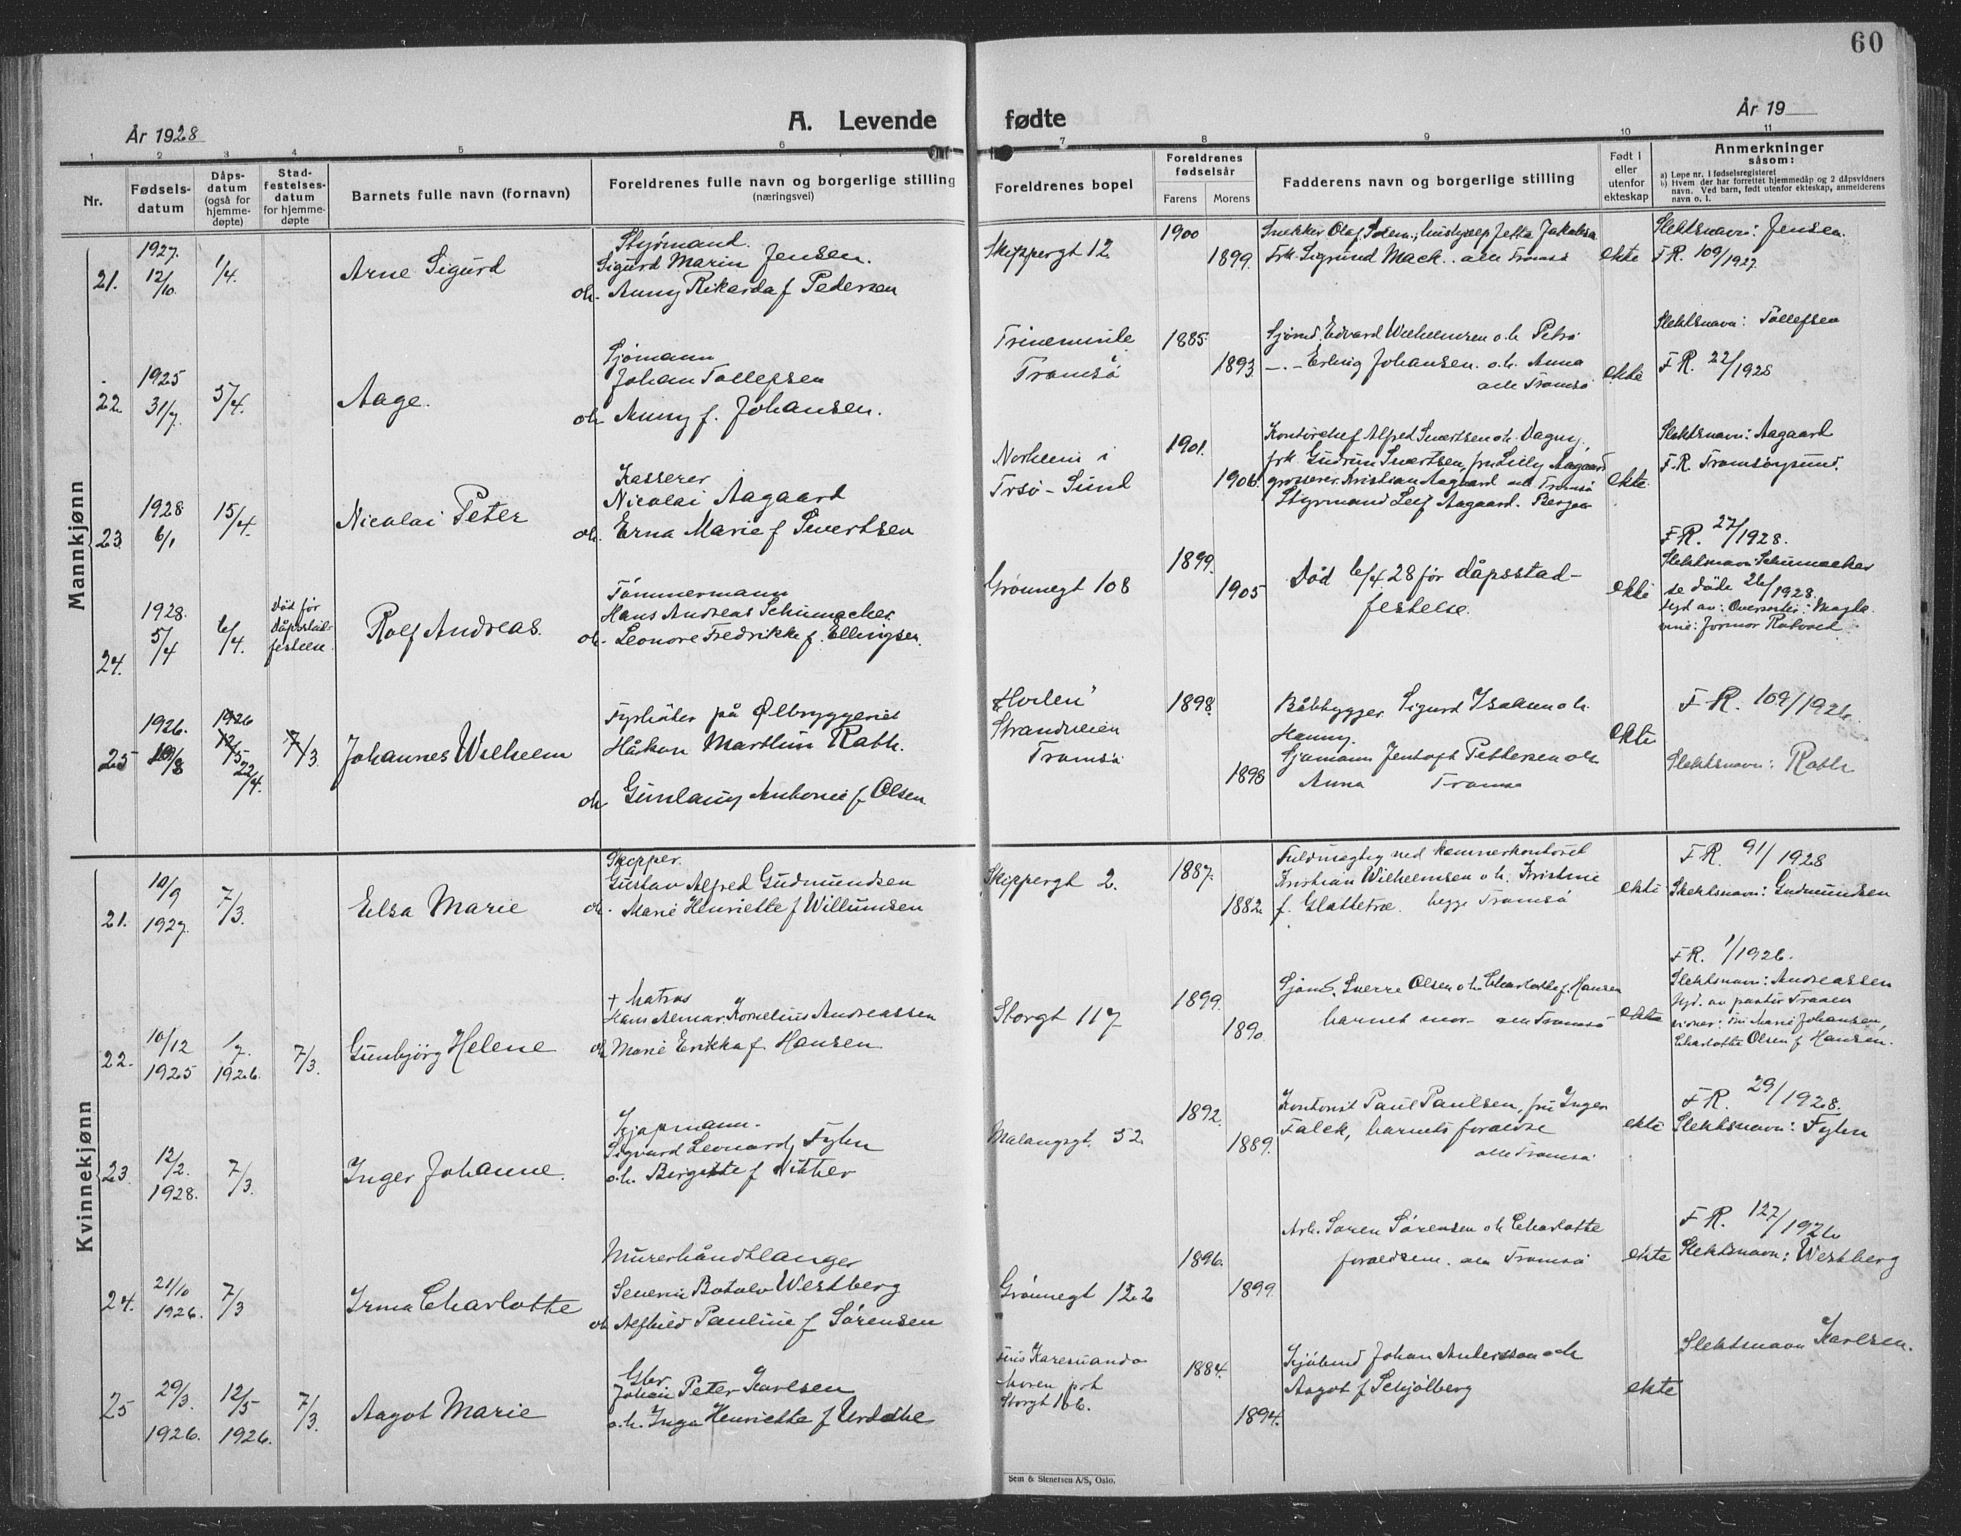 60
År 1928
A. Levende fødte
År 19
1 2 3 4 5 6 7 8 9 10 11
Nr.
Fødsels-
datum
Dåps-
datum
(også for
hjemme-
døpte)
Stad-
festelses-
datum
for hjemme-
døpte
Barnets fulle navn (fornavn)
Foreldrenes fulle navn og borgerlige stilling
(næringsvei)
Foreldrenes bopel
Foreldrenes
fødselsår
Farens Morens
Fadderens navn og borgerlige stilling
Født i
eller
utenfor
ekteskap
Anmerkninger
såsom:
a) Løpe nr. i fødselsregisteret
b) Hvem der har forrettet hjemmedåp og 2 dåpsvidners
navn. Ved barn, født utenfor ekteskap, anmelderens
navn o. l.
Mannkjønn
21.
1927.
12/10.
1/4.
Arne Sigurd
Styrmand.
Sigurd Marin Jensen.
oh. Anny Rikarda f Pedersen
Skippergt 12.
1900
1899.
Snekker Olaf Solem, hushjelp Jetta Jakobsen
Frk. Sigrund Mack. alle Tromsø
ekte
Slektsnavn: Jensen.
F.R. 109/1927.
22.
1925
31/7.
5/4.
Aage.
Sjømann
Johan Tollefsen
oh Anny f. Johansen.
Tromsø
1885.
1893.
Sjømd. Edvard Wilhelmsen o.h. Petra
-.- Erling Johansen. o.h. Anna
alle Tromsø
ekte
Slektsnavn: Tollefsen
F.R. 22/1928
23.
1928.
6/1
15/4.
Nicolai Peter
Kasserer
Nicolai Aagaard
oh. Erna Marie f Sivertsen
Norheim i
Trsø-Sund
1901.
1906.
Kontorchef Alfred Sivertsen o.h. Dagny,
frk. Gudrun Sivertsen, fru Lilly Aagaard
grosserer Kristian Aagaard alle Tromsø
Styrmand Leif Aagaard. Bergen
ekte.
Slektsnavn: Aagaard
F.R. Tromsøysund.
24.
1928.
5/4
6/4.
Død før
dåpsstad-
festelse.
Rolf Andreas.
Tømmermann
Hans Andreas Schumacher.
oh. Leonore Fredrikke f. Ellingsen.
Grønnegt 108
1899.
1905
Død 6/4 28 før dåpsstad-
festelse.
ekte
F.R. 27/1928.
Slektsnavn Schumacker
se døde 26/1928.
25
1926.
10/8
1926
12/5
22/4.
7/3.
Johannes Wilhelm
Fyrbøter på Ølbryggeriet
Håkon Martin Rath.
oh Gunlaug Antonie f Olsen
"Hvilen"
Strandveien
Tromsø
1898.
1898
Båtbygger Sigurd Isaksen o.h.
Hanny.
Sjømann Jentoft Pettersen o.h
Anna Tromsø
ekte
F.R. 109/1926.
Slektsnavn: Rath
Kvinnekjønn
21.
10/9
1927.
7/3.
Elsa Marie
Skipper.
Gustav Alfred Gudmundsen
oh. Marie Henriette f Willumsen
Skippergt 2.
1887.
1882.
Fuldmægtig ved kemnerkontoret
Kristian Wilhelmsen o.h. Kristine
f. Glattetre. begge Tromsø
ekte
F.R. 91/1928
Slektsnavn: Gudmundsen
22.
10/12
1925
1/7.
1926.
7/3.
Gunbjörg Helene
+ Matros
Hans Aemar. Kornelius Andreassen
oh Marie Erikka f Hansen
Storgt 117
1899.
1890.
Sjøm. Sverre Olsen o.h Charlotte f. Hansen
barnets mor - alle Tromsø
ekte
F.R. 1/1926.
Slektsnavn: Andreassen
Charlotte Olsen f Hansen.
23.
12/2.
1928.
7/3.
Inger Johanne.
Kjøpmann.
Sigvard Leonard Fyhn
o.h. Bergitte f Vikker
Malangsgt. 52
1892.
1889.
Kontorist Paul Paulsen, fru Inger
Falck, barnets forældre
alle Tromsø
ekte
F.R. 29/1928.
Slektsnavn: Fyhn
24.
21/10
1926.
7/3
Irma Charlotte
Murerhåndtlanger
Severin Botolv Westberg
oh Alfhild Pauline f Sørensen
Grønnegt 122
1896.
1899.
Arb. Søren Sørensen o.h Charlotte
forældrene. alle Tromsø
ekte
F.R. 127/1926
Slektsnavn: Westberg
25
29/3.
1926.
12/5
1926.
7/3.
Aagot Marie
Gbr.
Johan Peter Karlsen
o.h. Inga Henriette f Urdahl
Karesuando
moren prt
Storgt 166.
1884.
1894.
Johan Andersson o.h
Aagot f Schjølberg
ekte
Slektsnavn Karlsen.
Sem & Stenersen A/S, Oslo.